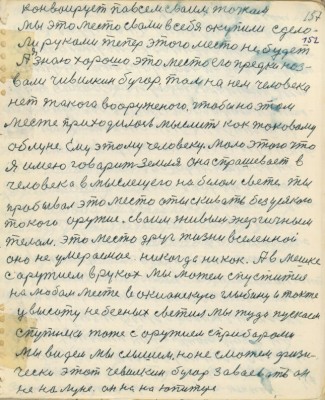 конвоирует по всем своим точкам 157
Мы это место с вами в себя окупили сдело-
ли руками теперь этого место не будет 152
Я знаю хорошо это место его предки наз-
вали чивилкин бугар, там на нем человека
нет такого вооруженого, чтобы на этом
месте приходилось мыслить как таковому
облуне. Ему этому человеку мало этого что
Я имею говарит Земля она спрашевает в
человека в мыслещего на белом свете ты
пробывал это место отыскивать без усякого
токого оружие. своим живым энергичным
телам, это место друг жизни вселенной
оно не умераемае никогда никак. А в мешке
с аружием в руках мы можем спустится
на любом месте в океанскую глыбину и также
у высоту небесных светил мы туда пускаем
спутники тоже с оружием с прибарами
Мы видем мы слышем, но не сможем физи-
чески этот чевилкин бугар заваевать он
не на луне, он на на юпитере